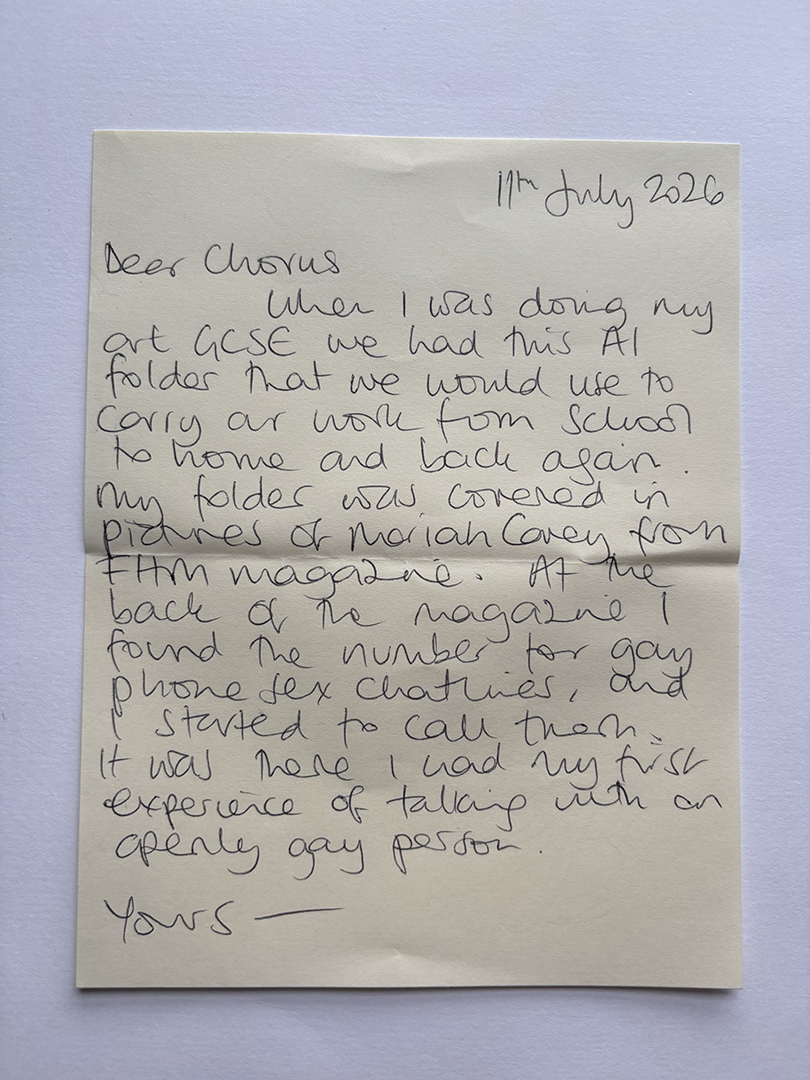 11th July 2026
Dear Chorus
When I was doing my
art GCSE we had this A1
folder that we would use to
carry our work from school
to home and back again.
My folder was covered in
pictures of Mariah Carey from
FHM magazine. At the
back of the magazine I
found the number for gay
phone sex chatlines, and
I started to call them.
It was there I had my first
experience of talking with an
openly gay person.
Yours —